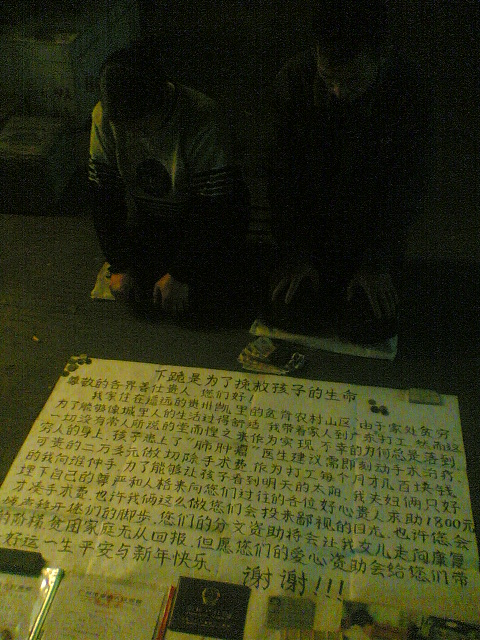 下跪是为了挽救孩子的生命
尊敬的各界善仕贵人 您们好!
我家住在遥远的贵州凯里的贫育农村山区,由于家处贫穷
为了能够像城里人的生活过得舒适,我带着家人到广东打工,然而这
一切没有常人所说的幸而惶之来作为实现,不幸的为何总是落到
穷人的身上,孩子患上了"肺肿瘤"医生建议需即刻动手术治疗,
可贵的二万多元做切除手术费,作为打工每个月才几百块钱
的我向谁伸手,为了能够让孩子看到明天的太阳,我夫妇俩只好
埋下自己的尊严和人格来向您们过往的各位好心贵人求助1800元
才凑手术费,也许我俩这么做您们会投来鄙视的目光,也许您会
开您们的脚步,您们的分文资助将会让我女儿走向康复
的阶梯,贫困家庭无从回报,但愿您们的爱心资助会给您们带
好运一生平安与新年快乐
谢谢!!!